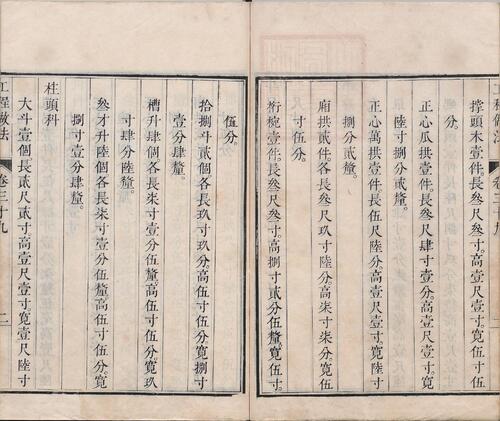 撐頭木壹件長叁尺叁寸高壹尺壹寸寬伍
分
正心瓜拱壹件長叁尺肆寸壹分高壹尺壹寸寬
陸寸捌分貳釐
正心萬拱壹件長伍尺陸分高壹尺壹寸寬陸寸
捌分貳釐
廂拱貳件各長叁尺叁分高柒寸柒分寬伍
寸伍分
桁椀壹件長叁尺叁寸高捌寸貳分伍釐寬伍寸
伍分
拾捌斗貳個各長玖寸玖分高伍寸伍分寬捌寸
壹分肆釐
槽升肆個各長柒寸壹分伍釐高伍寸伍分寬玖
寸肆分陸釐
叁才升陸個各長柒寸壹分伍釐高伍寸伍分寬
捌寸壹分肆釐
柱頭科
大斗壹個長貳尺貳寸高壹尺壹寸寬壹尺陸寸
工程做法 卷三十九 二